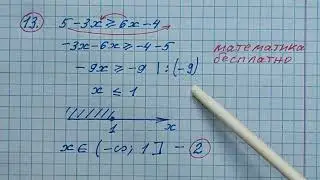 13. 5 - 3x ≥ 6x - 4
-3x - 6x ≥ -4 - 5
-9x ≥ -9 | : (-9)
x ≤ 1
1 x
x ∈ (-∞; 1] - 2
математика
бесплатно